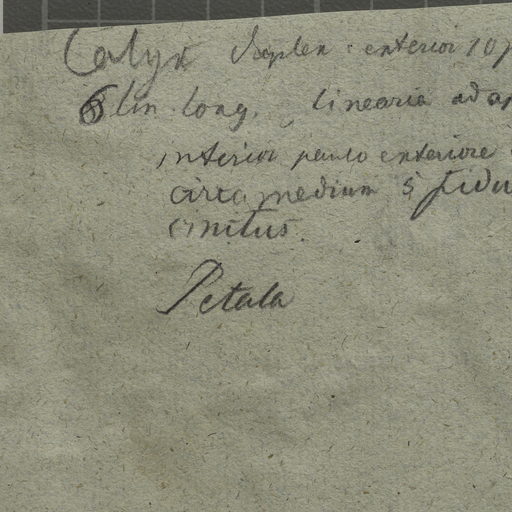 Calyx duplex: exterior 10 p
6 lin. long., linearia ad ap
interior paulo exteriore
circa medium 5 fidu
cinctus.
Petala